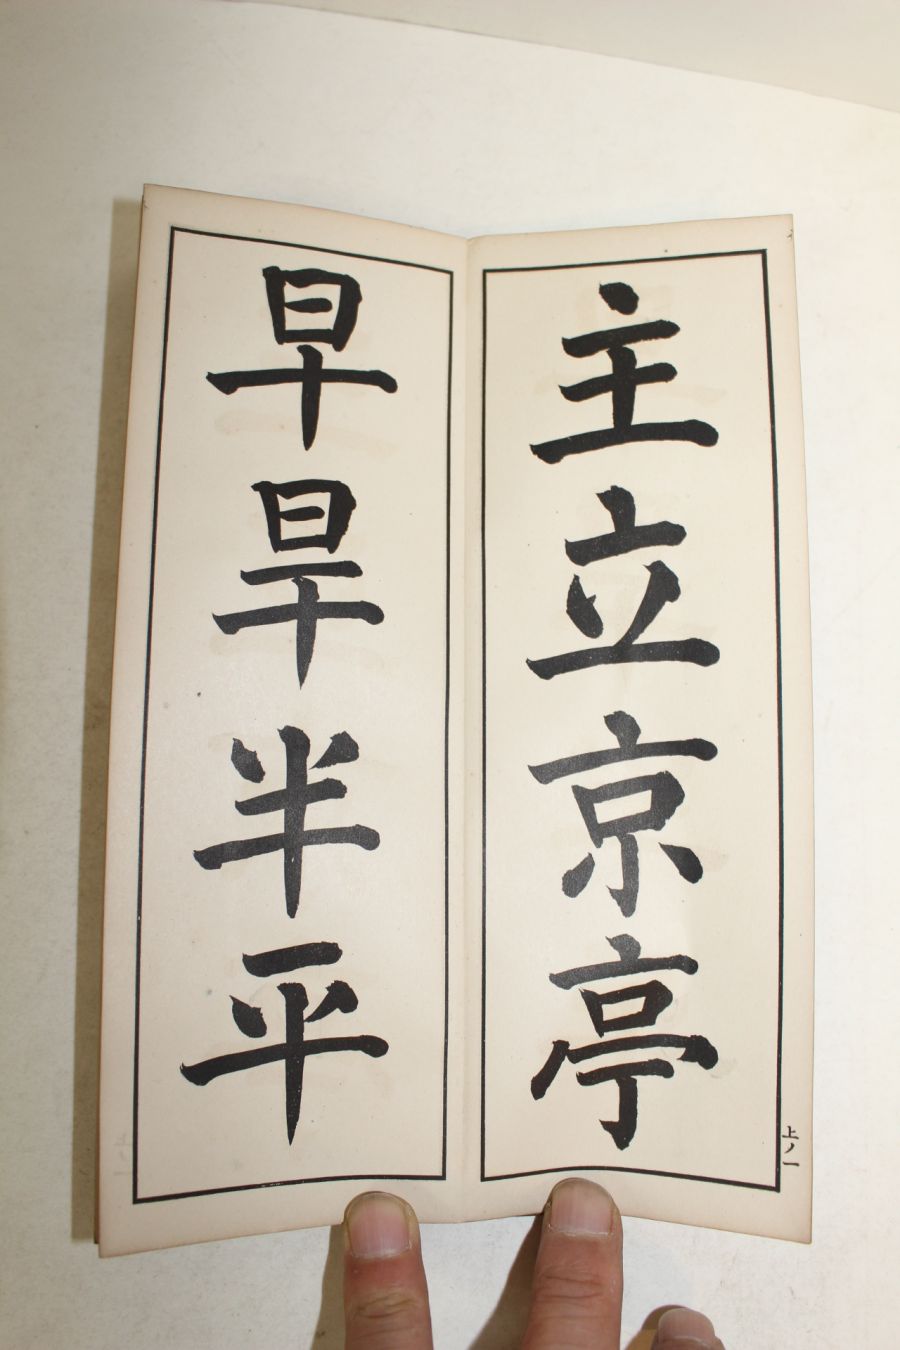 主立京亭
早旱半平
上ノ一